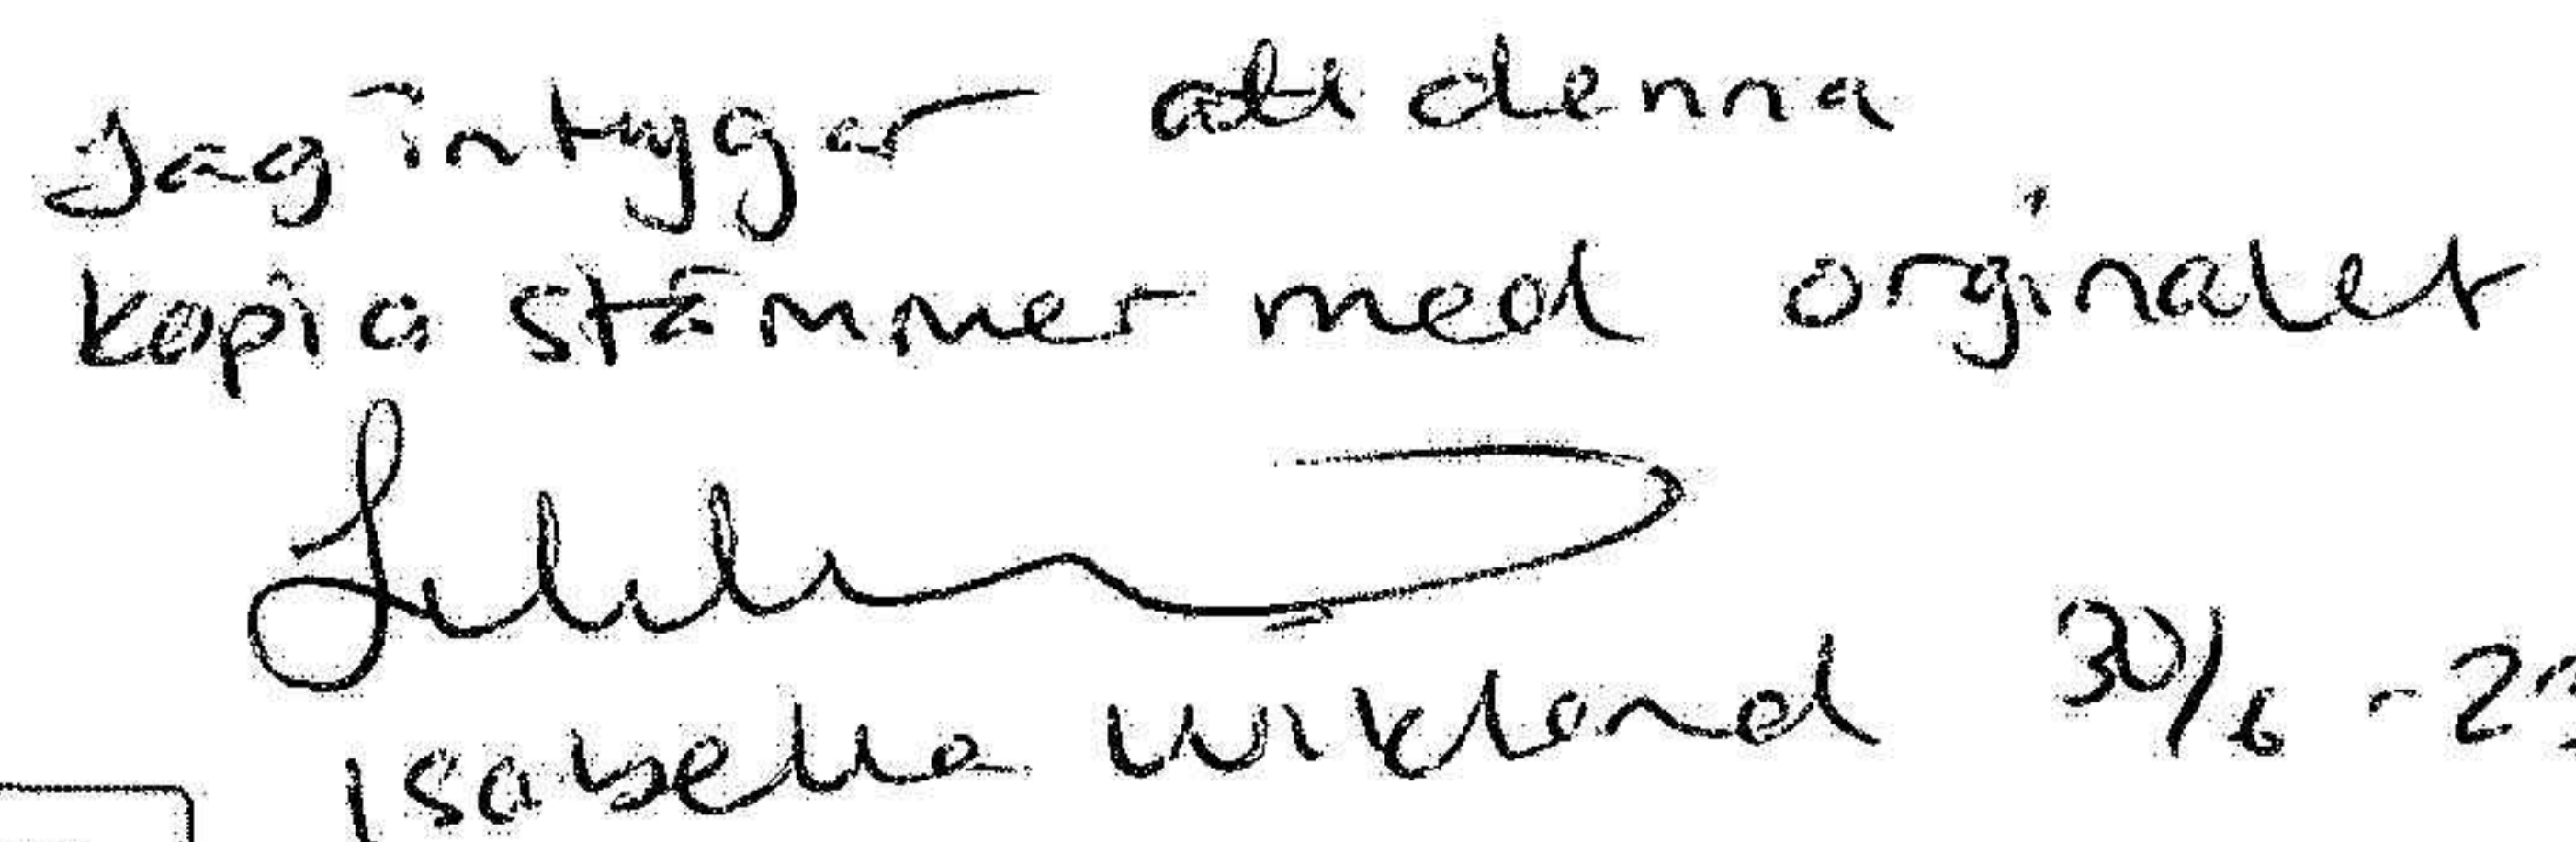 Jag intygar att denna
kopia stämmer med orginalet
Isabella Wikland 30/6 -23